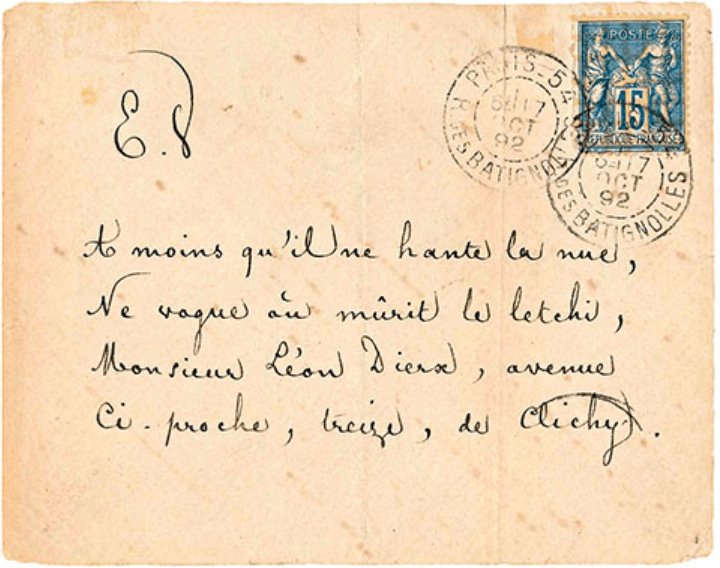 POSTE
15
REPUBLIQUE FRANÇAISE
PARIS-54
OCT
92
R. DES BATIGNOLLES
OCT
92
DES BATIGNOLLES
E.V
A moins qu'il ne hante la nue,
Ne vogue où mûrit le letchi,
Monsieur Léon Dierx, avenue
Ci-proche, treize, de Clichy.